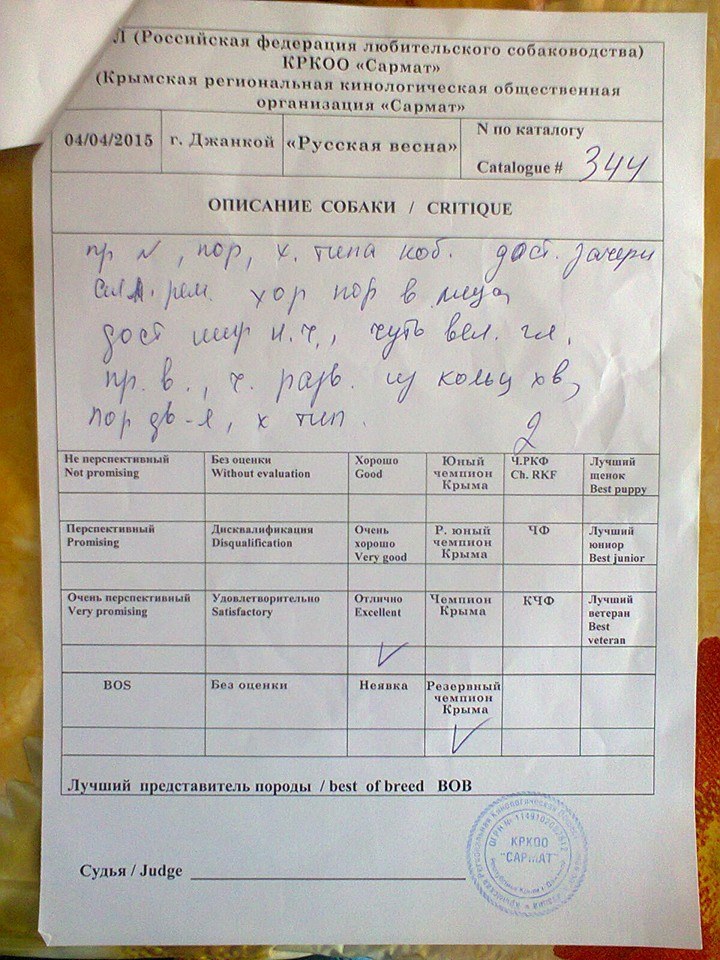 Л (Российская федерация любительского собаководства)
КРКОО «Сармат»
(Крымская региональная кинологическая общественная
организация «Сармат»
04/04/2015 г. Джанкой «Русская весна» N по каталогу
Catalogue # 344
ОПИСАНИЕ СОБАКИ / CRITIQUE
пр N, пор, х. типа коб. дост.
рем. хор пор в
дост шир н.ч., чуть вел. гл,
пр. в., ч. разв. из кольц хв,
пор дв-я, х тип.
2
Не перспективный Без оценки Хорошо Юный Ч.РКФ Лучший
Not promising Without evaluation Good чемпион Ch. RKF щенок
Крыма Best puppy
Перспективный Дисквалификация Очень Р. юный ЧФ Лучший
Promising Disqualification хорошо чемпион юниор
Very good Крыма Best junior
Очень перспективный Удовлетворительно Отлично Чемпион КЧФ Лучший
Very promising Satisfactory Excellent Крыма ветеран
Best
veteran
BOS Без оценки Неявка Резервный
чемпион
Крыма
Лучший представитель породы / best of breed BOB
Судья / Judge
КРКОО
"САРМАТ"